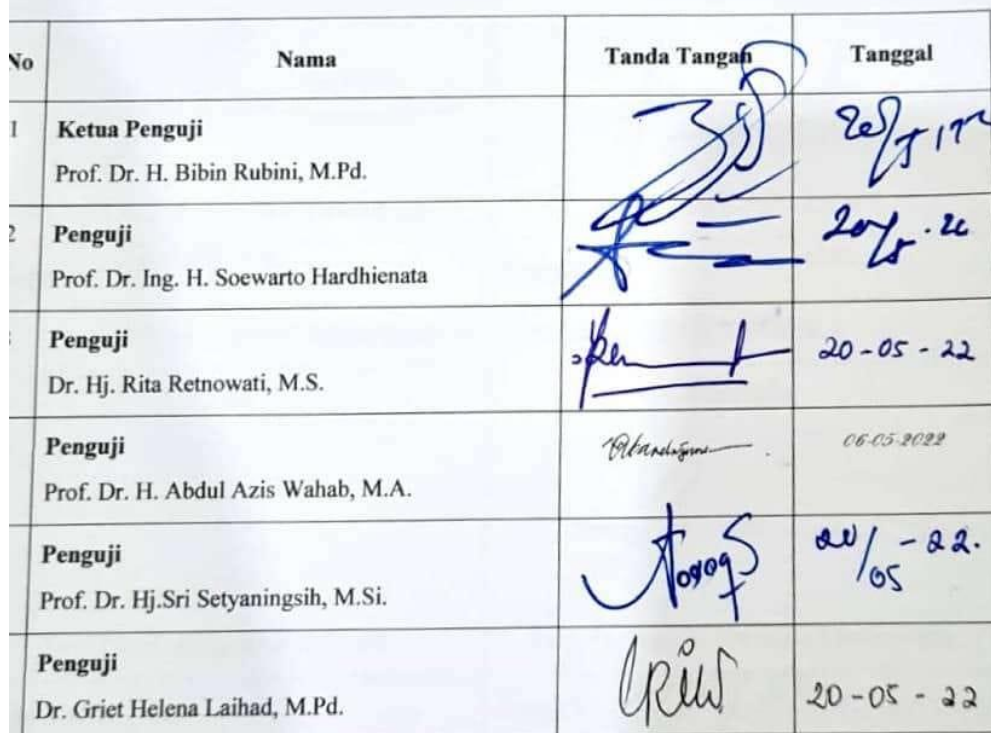 No Nama Tanda Tangan Tanggal
1 Ketua Penguji
Prof. Dr. H. Bibin Rubini, M.Pd.
2 Penguji
Prof. Dr. Ing. H. Soewarto Hardhienata
Penguji
Dr. Hj. Rita Retnowati, M.S. 20-05-22
Penguji 06-05-2022
Prof. Dr. H. Abdul Azis Wahab, M.A.
Penguji 20/05-22.
Prof. Dr. Hj.Sri Setyaningsih, M.Si.
Penguji
Dr. Griet Helena Laihad, M.Pd. 20-05-22